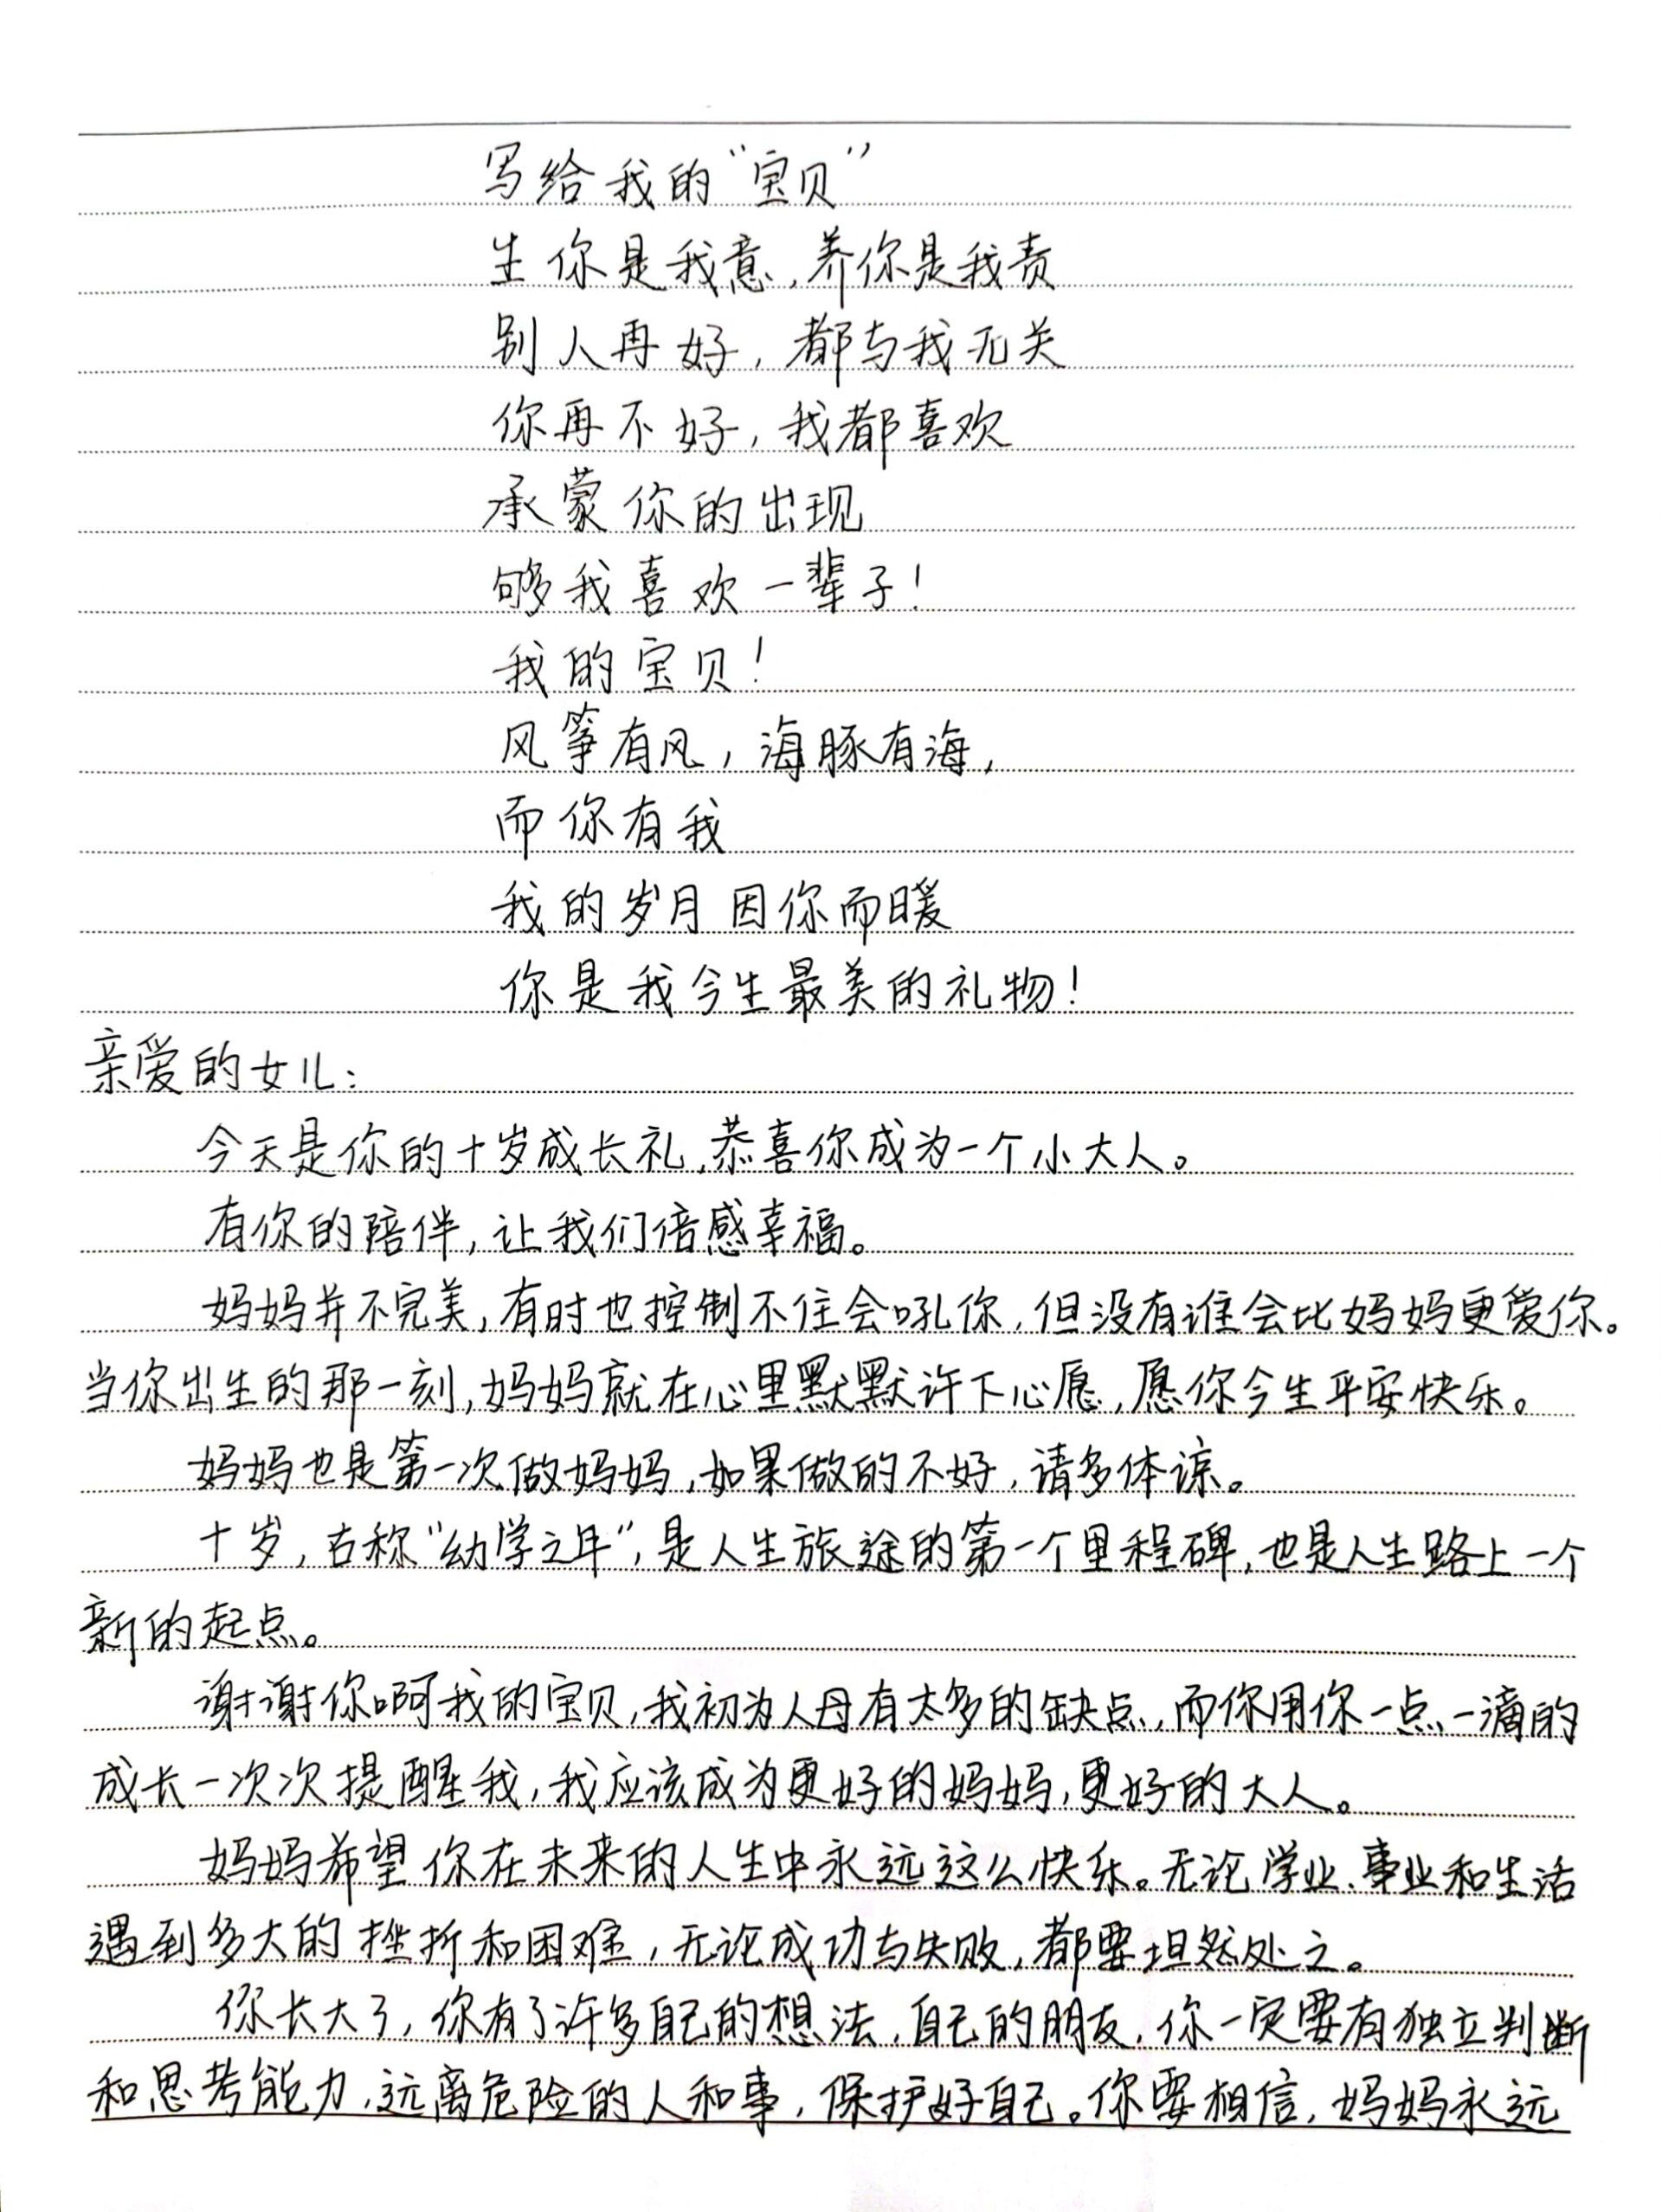 写给我的“宝贝”
生你是我意,养你是我责
别人再好,都与我无关
你再不好,我都喜欢
承蒙你的出现
够我喜欢一辈子!
我的宝贝!
风筝有风,海豚有海,
而你有我
我的岁月因你而暖
你是我今生最美的礼物!
亲爱的女儿:
今天是你的十岁成长礼,恭喜你成为一个小大人。
有你的陪伴,让我们倍感幸福。
妈妈并不完美,有时也控制不住会吼你,但没有谁会比妈妈更爱你。
当你出生的那一刻,妈妈就在心里默默许下心愿,愿你今生平安快乐。
妈妈也是第一次做妈妈,如果做的不好,请多体谅。
十岁,古称“幼学之年”,是人生旅途的第一个里程碑,也是人生路上一个
新的起点。
谢谢你啊我的宝贝,我初为人母有太多的缺点,而你用你一点一滴的
成长一次次提醒我,我应该成为更好的妈妈,更好的大人。
妈妈希望你在未来的人生中永远这么快乐。无论学业、事业和生活
遇到多大的挫折和困难,无论成功与失败,都要坦然处之。
你长大了,你有了许多自己的想法,自己的朋友,你一定要有独立判断
和思考能力,远离危险的人和事,保护好自己。你要相信,妈妈永远